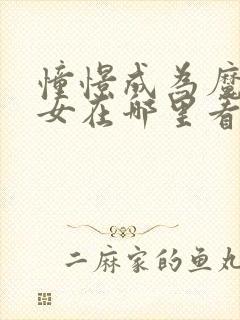 憧憬成为魔
女在哪里看
二麻家的鱼丸